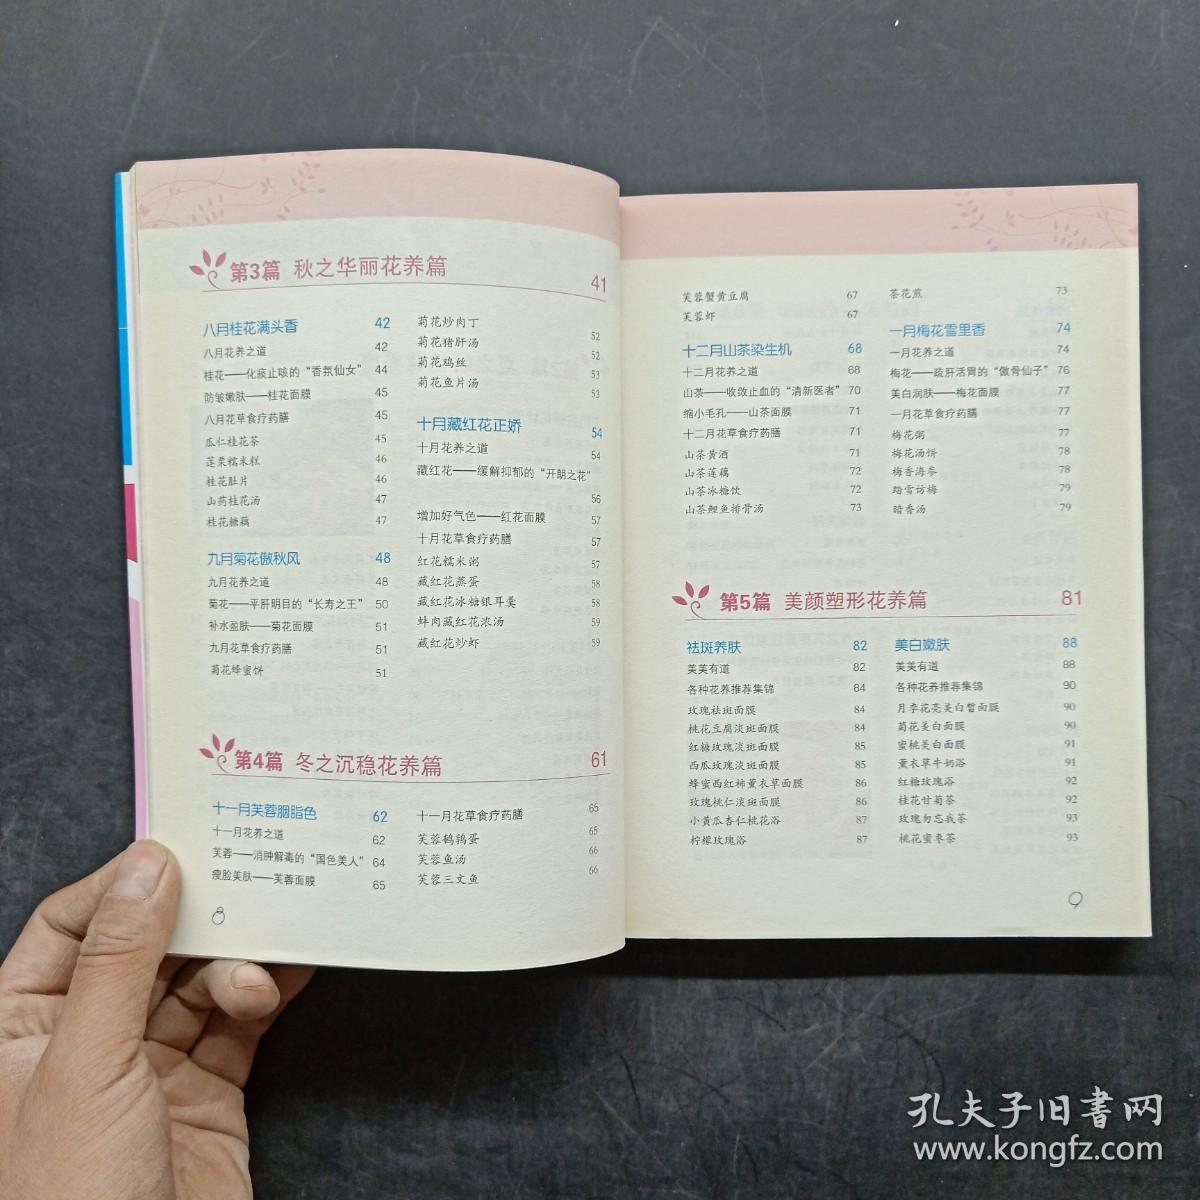 第3篇 秋之华丽花养篇 41
八月桂花满头香 42
八月花养之道 42
桂花——化痰止咳的“香氛仙女” 44
防皱嫩肤——桂花面膜 45
八月花草食疗药膳 45
瓜仁桂花茶 45
莲栗糯米糕 46
桂花肚片 46
山药桂花汤 47
桂花糖藕 47
九月菊花傲秋风 48
九月花养之道 48
菊花——平肝明目的“长寿之王” 50
补水盈肤——菊花面膜 51
九月花草食疗药膳 51
菊花蜂蜜饼 51
菊花炒肉丁 52
菊花猪肝汤 52
菊花鸡丝 53
菊花鱼片汤 53
十月藏红花正娇 54
十月花养之道 54
藏红花——缓解抑郁的“开朗之花”
56
增加好气色——红花面膜 57
十月花草食疗药膳 57
红花糯米粥 57
藏红花蒸蛋 58
藏红花冰糖银耳羹 58
蚌肉藏红花浓汤 59
藏红花炒虾 59
第4篇 冬之沉稳花养篇 61
十一月芙蓉胭脂色 62
十一月花养之道 62
芙蓉——消肿解毒的“国色美人” 64
瘦脸美肤——芙蓉面膜 65
十一月花草食疗药膳 65
芙蓉鹌鹑蛋 65
芙蓉鱼汤 66
芙蓉三文鱼 66
8
芙蓉蟹黄豆腐 67
芙蓉虾 67
十二月山茶染生机 68
十二月花养之道 68
山茶——收敛止血的“清新医者” 70
缩小毛孔——山茶面膜 71
十二月花草食疗药膳 71
山茶黄酒 71
山茶莲藕 72
山茶冰糖饮 72
山茶鲤鱼排骨汤 73
茶花煎 73
一月梅花雪里香 74
一月花养之道 74
梅花——疏肝活胃的“傲骨仙子” 76
美白润肤——梅花面膜 77
一月花草食疗药膳 77
梅花粥 77
梅花汤饼 78
梅香海参 78
踏雪访梅 79
暗香汤 79
第5篇 美颜塑形花养篇 81
祛斑养肤 82
美美有道 82
各种花养推荐集锦 84
玫瑰祛斑面膜 84
桃花豆腐淡斑面膜 84
红糖玫瑰淡斑面膜 85
西瓜玫瑰淡斑面膜 85
蜂蜜西红柿薰衣草面膜 86
玫瑰桃仁淡斑面膜 86
小黄瓜杏仁桃花浴 87
柠檬玫瑰浴 87
美白嫩肤 88
美美有道 88
各种花养推荐集锦 90
月季花亮美白皙面膜 90
菊花美白面膜 90
蜜桃美白面膜 91
薰衣草牛奶浴 91
红糖玫瑰浴 92
桂花甘菊茶 92
玫瑰勿忘我茶 93
桃花蜜枣茶 93
9
孔夫子旧书网
www.kongfz.com